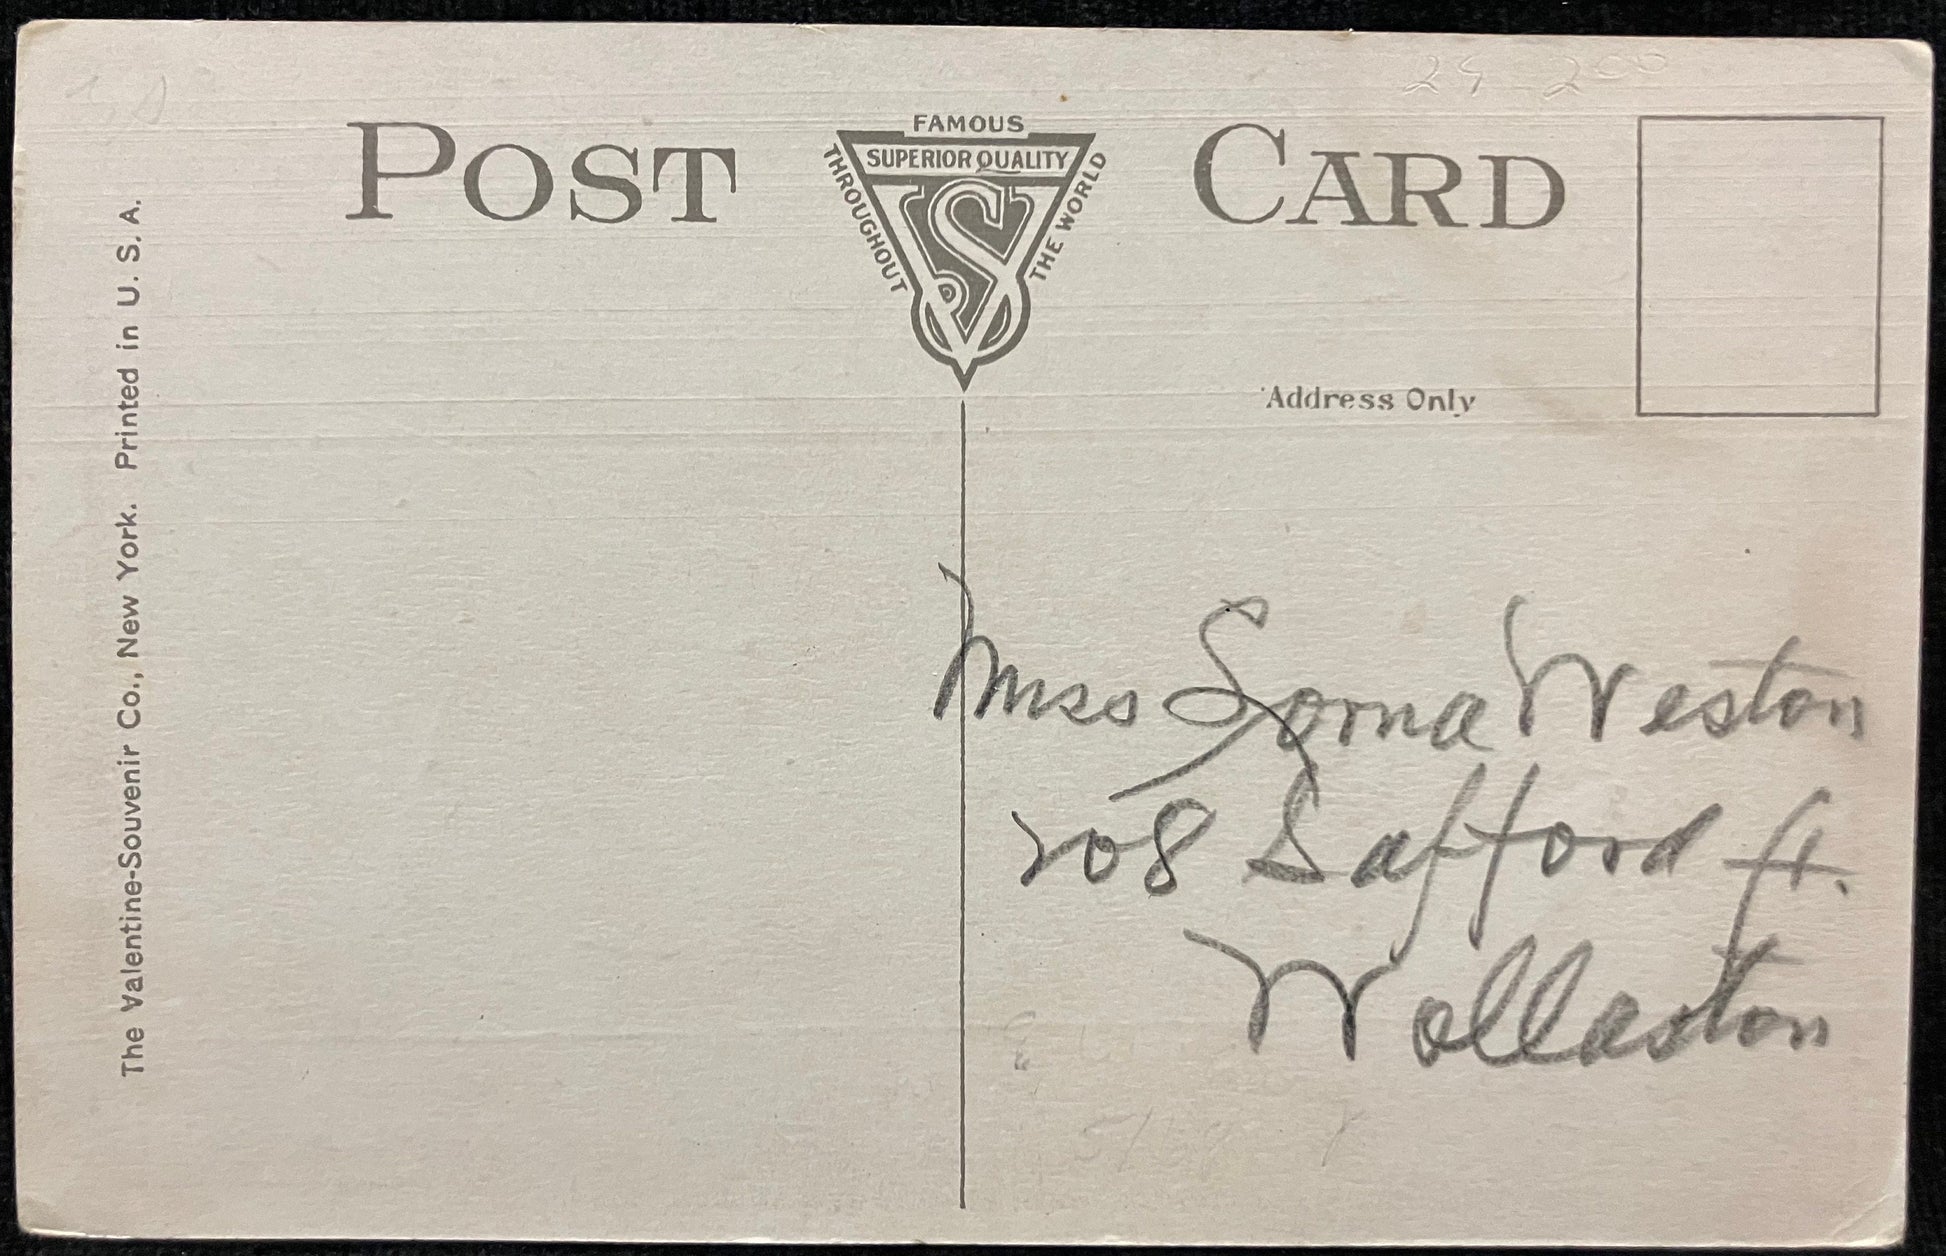 29-200
POST CARD
FAMOUS
SUPERIOR QUALITY
THROUGHOUT
THE WORLD
VS
Address Only
The Valentine-Souvenir Co., New York. Printed in U. S. A.
Miss Lorna Weston
208 Safford St.
Wollaston